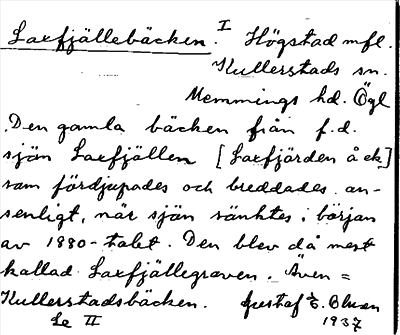 Laxfjällebäcken. I Högstad mfl.
Kullerstads sn.
Memmings hd. Ögl
Den gamla bäcken från f.d.
sjön Laxfjällen [Laxfjärden å ek.]
som fördjupades och breddades an-
senligt, när sjön sänktes i början
av 1880-talet. Den blev då mest
kallad Laxfjällegraven. Även =
Kullerstadsbäcken. Gustaf E. Olsson
Se II 1937